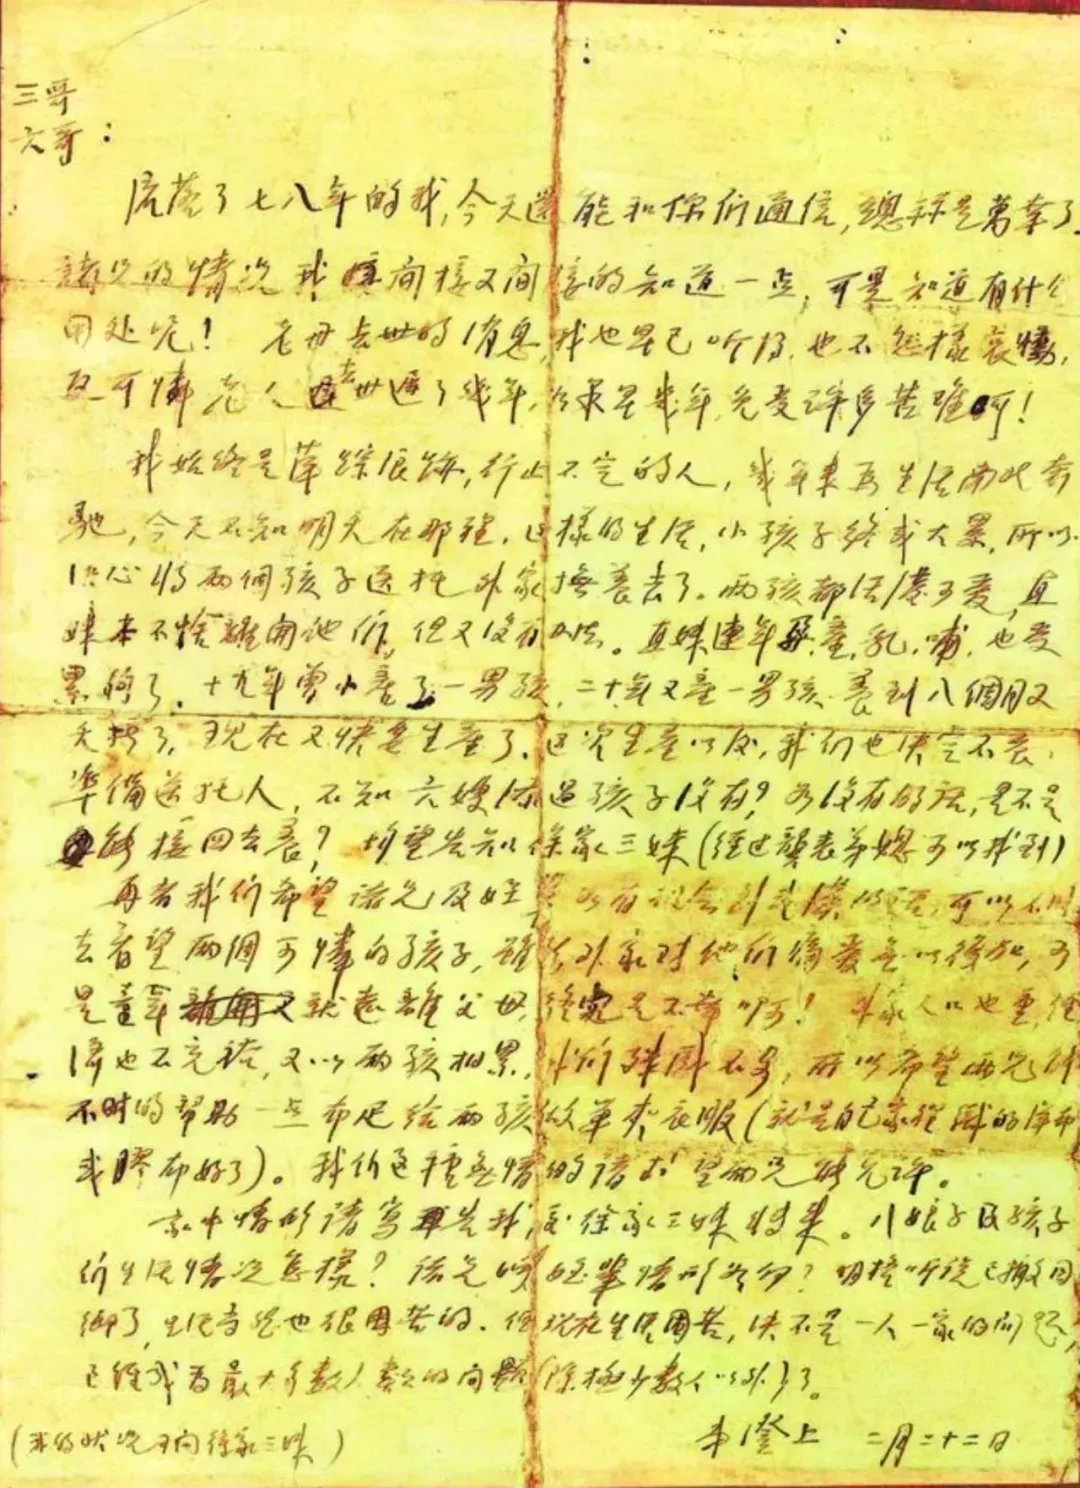 三哥
六哥：
流落了七八年的我，今天還能和你们通信，總祘是萬幸了。
諸兄的情况我 间接又间接的知道一点，可是知道有什么
用处呢！老母去世的消息，我也早已听得，也不怎樣哀慟，
反可憐老人去世遲了幾年，如果早幾年免受许多苦难呵！
我始终是萍踪浪跡，行止不定的人，幾年来为生活南北奔
馳，今天不知明天在那裡。这樣的生活，小孩子终成大累，所以
决心将两個孩子送托外家撫养去了。两孩都活潑可爱，直
妹本不愿離開他们，但又没有办法。直妹連年孕產乳哺，也受
累夠了。十九年曾小產了一男孩，二十年又產一男孩，養到八個月又
夭折了，现在又快要生產了。这次生產以后，我们也决定不养，
準備送托人，不知六嫂添过孩子没有？如没有的话，是不是
能接回去养？均望告知徐家三妹（经过龔表弟媳可以找到）
再者我们希望诸兄及侄辈如有机会到武漢的话，可以不时
去看望两個可憐的孩子，雖然外家对他们痛爱无以復加，可
是童年就远離父母终究是不幸啊！外家人口也重，经
濟也不充裕，又以两孩相累，我们殊感不安，所以希望两兄能
不时的帮助一点布疋给两孩做单夹衣服（就是自己家裡織的洋布
或胶布好了）。我们这種无情的请求望两兄能允许。
家中情形请寫 告我，交徐家三妹转来。八娘子及孩子
们生活情况怎樣？诸兄嫂侄辈情形如何？明格听说已搬回
乡了，生活当然也很困苦的，但现在生活困苦，决不是一人一家的问题，
已经成为最大多数人类的问题（除極少数人以外）了。
弟澄上 二月二十二日
（我的状况可问徐家三妹）